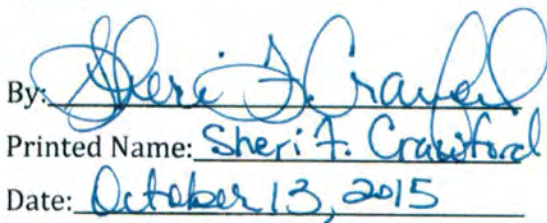 By: Sheri F. Crawford
Printed Name: Sheri F. Crawford
Date: October 13, 2015